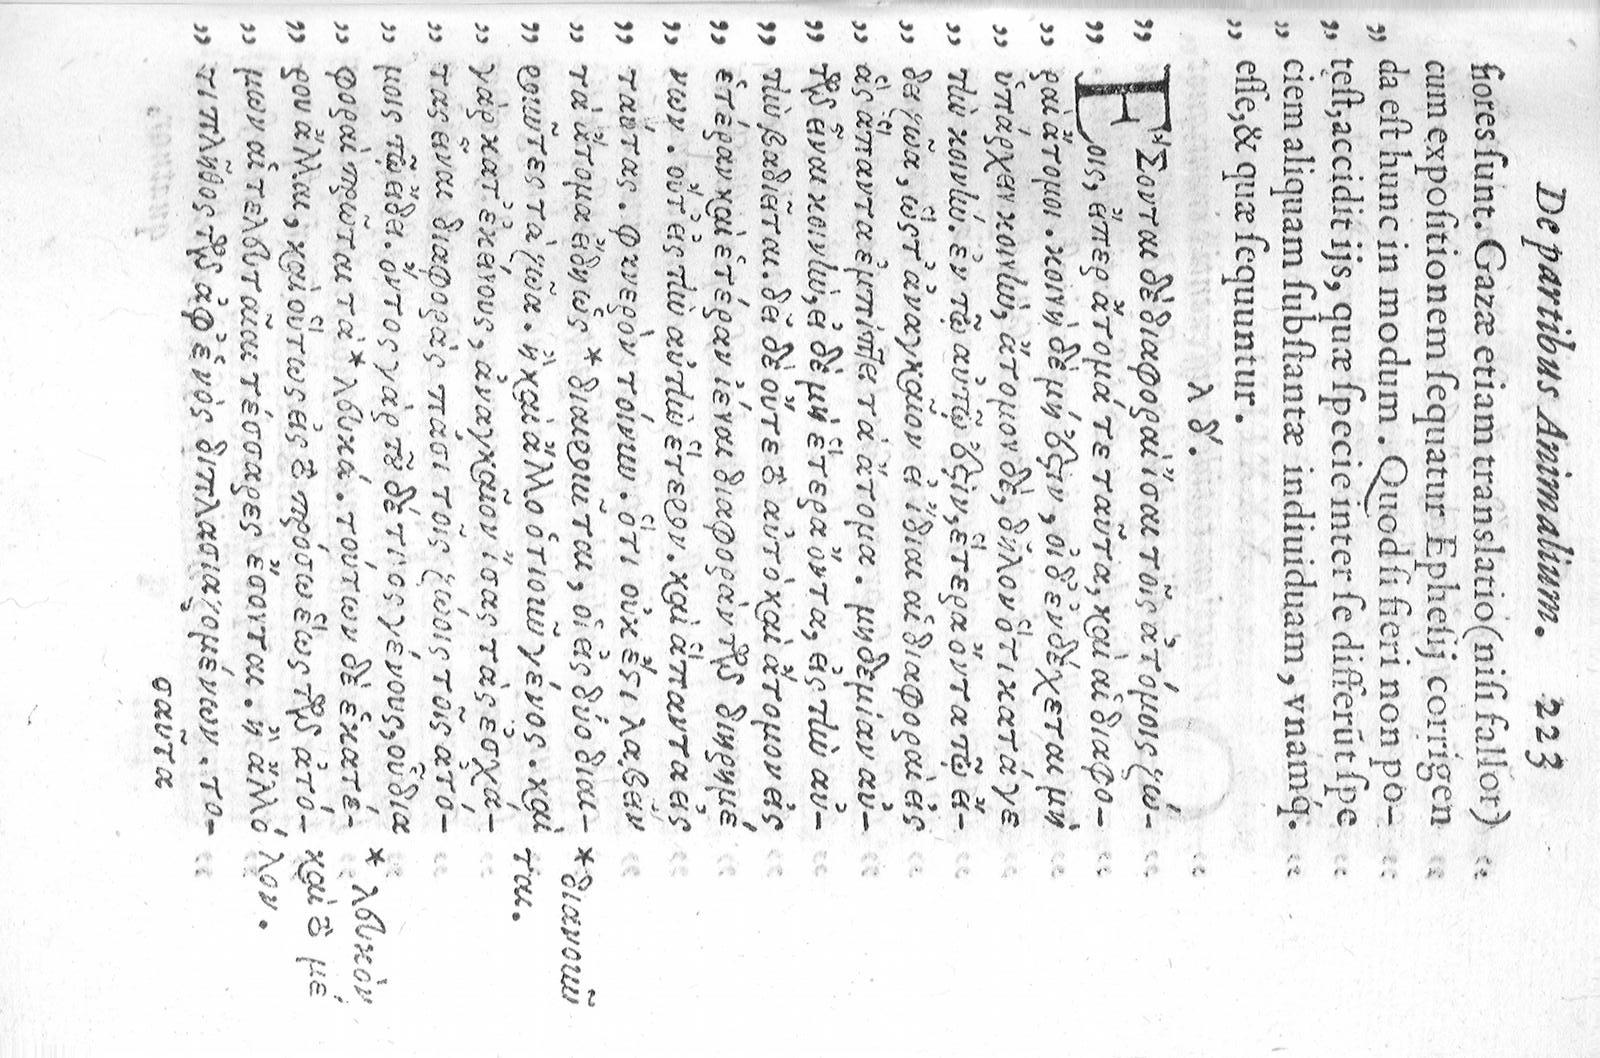 De partibus Animalium. 223
hores sunt. Gazæ etiam translatio (nisi fallor)
cum expositionem sequatur Ephesij corrigen
„ da est hunc in modum. Quod si fieri non po-
„ test, accidit ijs, quæ specie inter se differūt spe
„ ciem aliquam substantæ indiuiduam, vnamq́.
„ esse, & quæ sequuntur.
λδ.
„ ἜΣονται δὲ διαφοραὶ ἴσαι τοῖς ἀτόμοις ζώ-
„ οις, εἴπερ ἄτομά τε ταῦτα, καὶ αἱ διαφο-
„ ραὶ ἄτομοι. κοινὴ δὲ μή ἐστιν, εἰ δ' ἐνδέχεται μὴ
„ ὑπάρχειν κοινὴν, ἄτομον δὲ, δῆλον ὅτι κατά γε
„ τὴν κοινήν. ἐν τῷ αὐτῷ ἐστὶν, ἕτερα ὄντα τῷ εἴ-
„ δει ζῶα, ὥστ' ἀναγκαῖον εἰ ἴδιαι αἱ διαφοραὶ εἰς
„ ἃς ἅπαντα ἐμπίπτει τὰ ἄτομα. μηδεμίαν αὐ-
„ τῶν εἶναι κοινὴν, εἰ δὲ μὴ ἕτερα ὄντα, εἰς τὴν αὐ-
„ τὴν βαδιεῖται. δεῖ δὲ οὔτε τὸ αὐτὸ καὶ ἄτομον εἰς
„ ἑτέραν καὶ ἑτέραν ἰέναι διαφορὰν τῶν διῃρημέ
„ νων. οὔτ' εἰς τὴν αὐτὴν ἕτερον. καὶ ἅπαντα εἰς
„ ταύτας. φανερὸν τοίνυν. ὅτι οὐκ ἔστι λαβεῖν
„ τὰ ἄτομα εἴδη ὡς * διαιροῦνται, οἱ εἰς δύο διαι- * διανοοῦν
„ ροῦντες τὰ ζῶα. ἢ καὶ ἄλλο ὁτιοῦν γένος. καὶ ται.
„ γὰρ κατ' ἐκείνους, ἀναγκαῖον ἴσας τὰς ἐσχά-
„ τας εἶναι διαφορὰς πᾶσι τοῖς ζώοις τοῖς ἀτό-
„ μοις τῷ εἴδει. ὄντος γὰρ τοῦ δέ τινος γένους, οὗ δια
„ φοραὶ πρῶται τὰ * λευκά. τούτων δὲ ἑκατέ- * λευκόν
„ ρου ἄλλαι, καὶ οὕτως εἰς τὸ πρόσω ἕως τῶν ἀτό- καὶ τὸ μέ
„ μων αἱ τελευταῖαι τέσσαρες ἔσονται. ἢ ἄλλό λαν.
„ τι πλῆθος τῶν ἀφ' ἑνὸς διπλασιαζομένων. το-
σαῦτα